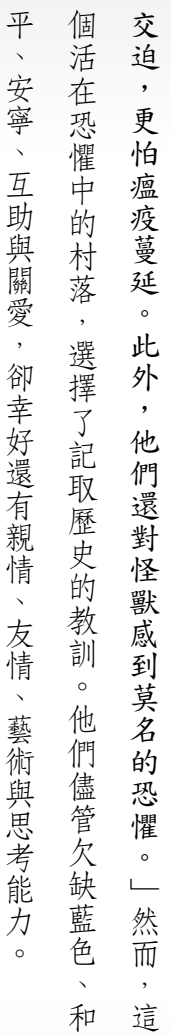 交迫，更怕瘟疫蔓延。此外，他們還對怪獸感到莫名的恐懼。」然而，這
個活在恐懼中的村落，選擇了記取歷史的教訓。他們儘管欠缺藍色、和
平、安寧、互助與關愛，卻幸好還有親情、友情、藝術與思考能力。